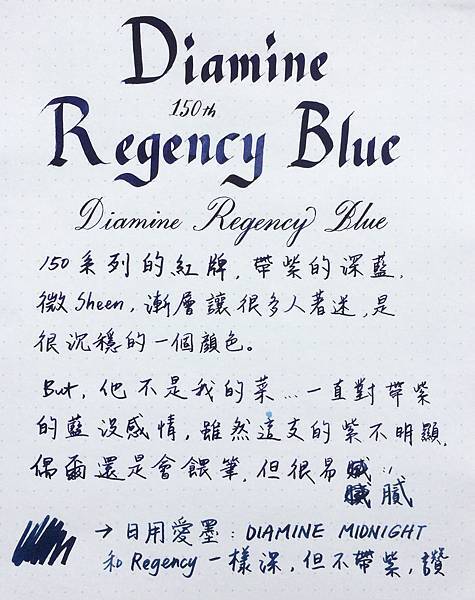 Diamine
150th
Regency Blue
Diamine Regency Blue
150系列的紅牌,帶紫的深藍,
微Sheen,漸層讓很多人著迷,是
很沉穩的一個顏色。
But,他不是我的菜…一直對帶紫
的藍沒感情,雖然這支的紫不明顯,
偶爾還是會餵筆,但很易
膩
→ 日用愛墨:DIAMINE MIDNIGHT
和Regency一樣深,但不帶紫,讚